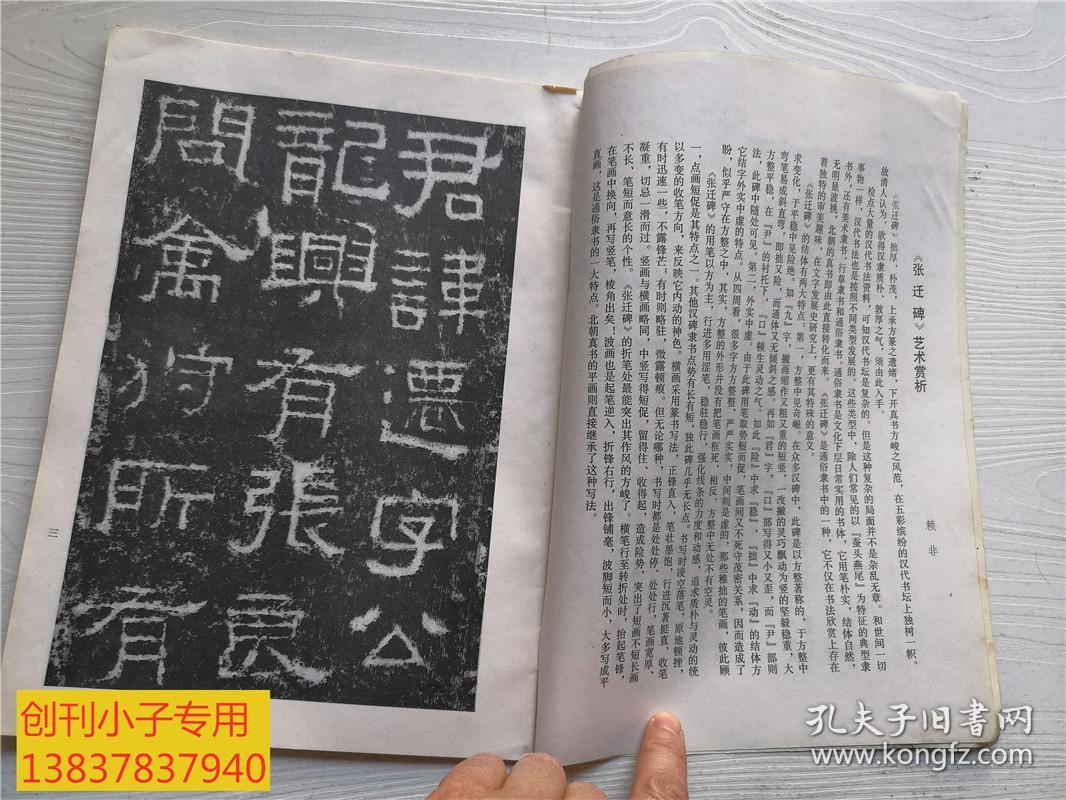 《张迁碑》艺术赏析
赖非
《张迁碑》拙厚、朴茂，上承方篆之遗绪，下开真书方峻之风范，在五彩缤纷的汉代书坛上独树一帜。
故清人认为，欲得汉隶质朴、敦厚之气，须由此入手。
检点大量的汉代书法资料，可知汉代书坛是复杂的。但是这种复杂的局面并不是杂乱无章。和世间一切
事物一样，汉代书法也是按照不同类型发展的。这些类型中，除人们常见的以『蚕头燕尾』为特征的典型隶
书外，还有美术隶书、行草隶书和通俗隶书。通俗隶书是文化下层日常实用的书体，它用笔朴实，结体自然，
无明显波挑，北朝的真书即由此直接转化而来。《张迁碑》是通俗隶书中的一种，它不仅在书法欣赏上存在
着独特的审美趣味，在文字发展史研究上，更有其特殊的意义。
《张迁碑》的结体有两大特点：第一，方整中见奇崛。在众多汉碑中，此碑是以方整著称的，于方整中
求变化，于平稳中见险绝。如『九』字，撇画缩作又粗又重的短竖，一改撇的灵巧飘动为竖的坚毅稳重，大
弯笔易成斜直弯，即拙又险，而通体又无倾斜之感。再如『君』字，『口』部写得又小又歪，而『尹』部则
方整平稳，在『尹』的衬托下，『口』顿生灵动之气。如此『险』中求『稳』，『拙』中求『动』的结体方
法，此碑中随处可见。第二，外实中虚。由于此碑用笔取势短而促，笔画间又不死守茂密关系，因而造成了
它结字外实中虚的特点。从四周看，很多字方方整整，严严实实，中间则是虚的，那些稚拙的笔画，彼此顾
盼，似乎严守在方整之中，其实，方整的外形并没有把笔画框死，相反，方整中无处不有空灵。
《张迁碑》的用笔以方为主，行进多用涩笔，稳驻稳行，强化线条的力度和动感，追求质朴与灵动的统
一，点画短促是其特点之二，其他汉碑隶书点势有长有短，独此碑几乎无长点。书写时凌空落笔，原地顿挫，
以多变的收笔方向，来反映它内动的神色。横画采用篆书写法，正锋直入，笔壮墨饱，行进沉著挺直，收笔
有时迅速一些，不露锋芒；有时则略驻，微露顿痕。但无论哪种，书写时都是处处停，处处行，笔画宽厚、
凝重，切忌一滑而过。竖画与横画略同，中竖写得短促，留得住、收得起，造成险势，突出了短画不短长画
不长、笔短而意长的个性。《张迁碑》的折笔处最能突出其作风的方峻了。横笔行至转折处时，抬起笔锋，
在笔画中换向，再写竖笔，棱角出矣！波画也是起笔逆入，折锋右行，出锋铺毫，波脚短而小，大多写成平
直画，这是通俗隶书的一大特点。北朝真书的平画则直接继承了这种写法。
君諱遷字公
龍興有張良
問禽狩所有
三
创刊小子专用
13837837940
孔夫子旧书网
www.kongfz.com